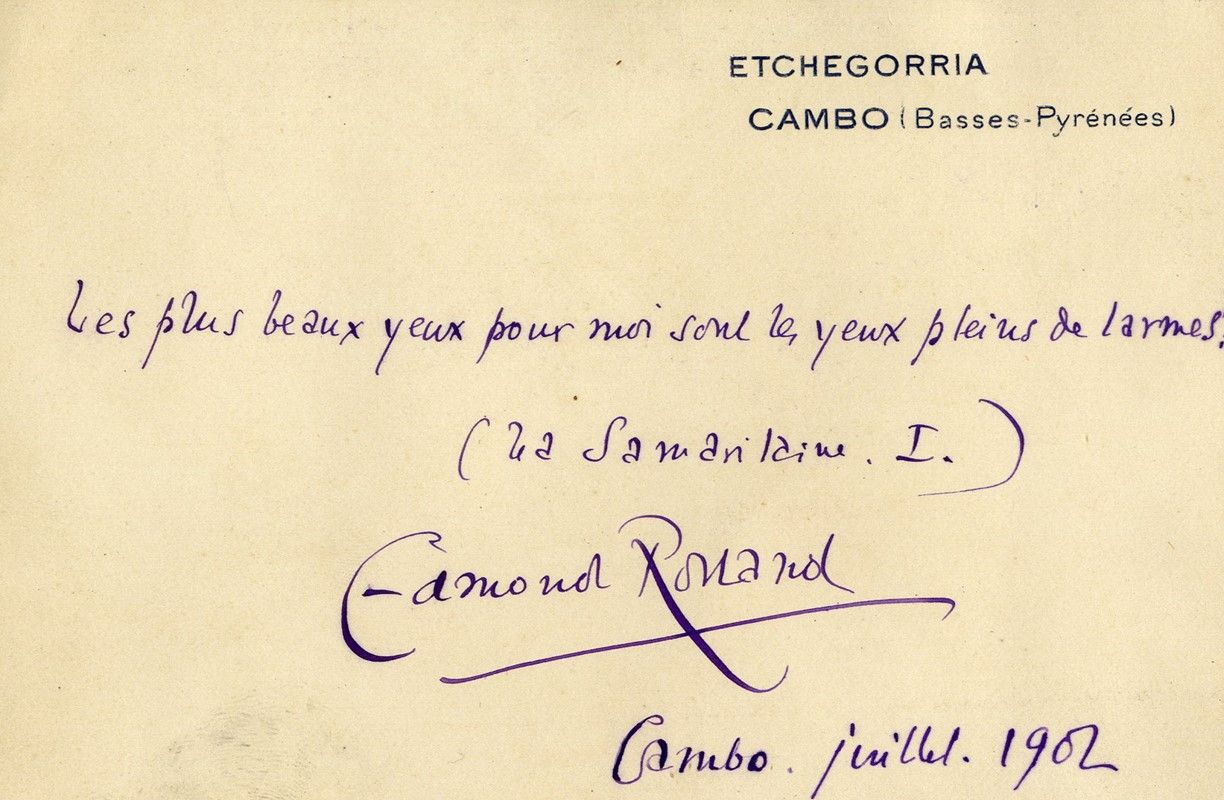 ETCHEGORRIA
CAMBO (Basses-Pyrénées)
Les plus beaux yeux pour moi sont les yeux pleins de larmes.
(La Samaritaine. I.)
Edmond Rostand
Cambo. juillet. 1902